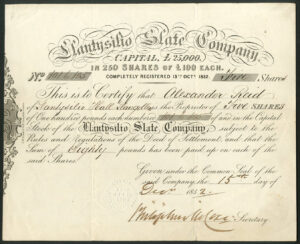 Llantysilio Slate Company,
CAPITAL, £25,000,
IN 250 SHARES OF £100 EACH.
COMPLETELY REGISTERED 13TH OCTR 1852.
No. Five Shares
This is to Certify that Alexander Reid
of Llantysilio Hall Llangollen is the Proprietor of Five SHARES
of One hundred pounds each numbered in the Capital
Stock of the Llantysilio Slate Company, subject to the
Rules and Regulations of the Deed of Settlement, and that the
Sum of Eighty pounds has been paid up on each of the
said Shares
Given under the Common Seal of the
said Company, the 15th day of
Decr 1852.
Secretary